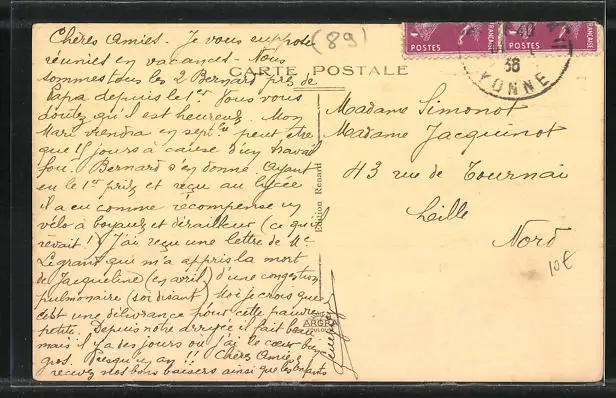 Chères Amies. Je vous suppose
réunies en vacances. Nous
sommes tous les 2 Bernard près de
Papa depuis le 1er Vous vous
doutez qu'il est heureux. Mon
Mari viendra en sept. peut être
que 15 jours à cause d'un travail
fou. Bernard s'en donne. Ayant
eu le 1er prix et reçu au lycée
il a eu comme récompense un
vélo à boyaux et dérailleur (ce qu'il
rêvait!) J'ai reçu une lettre de
Legrand qui m'a appris la mort
de Jacqueline (en avril) d'une congestion
pulmonaire (soi disant) Moi je crois que
c'est une délivrance pour cette pauvre
petite. Depuis notre arrivée il fait beau
mais il y a des jours où j'ai le cœur bien
gros. Presqu'un an!! Chères Amies
recevez nos bons baisers ainsi que les enfants
(89)
CARTE POSTALE
Edition Renard
ARGRA
POSTES
FRANÇAISE
POSTES
FRANÇAISE
38
YONNE
Madame Simonot
Madame Jacquinot
43 rue de Tournai
Lille
Nord
10€